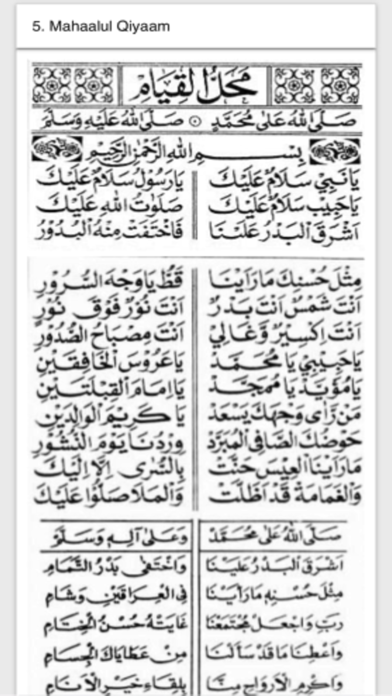 5. Mahaalul Qiyaam
مَحَلُّ الْقِيَامِ
صَلَّى اللهُ عَلَى مُحَمَّدٍ ۞ صَلَّى اللهُ عَلَيْهِ وَسَلَّمَ
بِسْمِ اللهِ الرَّحْمٰنِ الرَّحِيْمِ
يَا نَبِي سَلَامٌ عَلَيْكَ يَا رَسُوْلُ سَلَامٌ عَلَيْكَ
يَا حَبِيْبُ سَلَامٌ عَلَيْكَ صَلَوٰتُ اللهِ عَلَيْكَ
اَشْرَقَ الْبَدْرُ عَلَيْنَا فَاخْتَفَتْ مِنْهُ الْبُدُوْرُ
مِثْلَ حُسْنِكَ مَا رَاَيْنَا قَطُّ يَا وَجْهَ السُّرُوْرِ
اَنْتَ شَمْسٌ اَنْتَ بَدْرٌ اَنْتَ نُوْرٌ فَوْقَ نُوْرٍ
اَنْتَ اِكْسِيْرٌ وَّغَالِيْ اَنْتَ مِصْبَاحُ الصُّدُوْرِ
يَا حَبِيْبِيْ يَا مُحَمَّدُ يَا عَرُوْسَ الْخَافِقَيْنِ
يَا مُؤَيَّدُ يَا مُمَجَّدُ يَا اِمَامَ الْقِبْلَتَيْنِ
مَنْ رَاٰى وَجْهَكَ يَسْعَدُ يَا كَرِيْمَ الْوَالِدَيْنِ
حَوْضُكَ الصَّافِى الْمُبَرَّدُ وِرْدُنَا يَوْمَ النُّشُوْرِ
مَا رَاَيْنَا الْعِيْسَ حَنَّتْ بِالسُّرٰى اِلَّا اِلَيْكَ
وَالْغَمَامَةُ قَدْ اَظَلَّتْ وَالْمَلَا صَلُّوْا عَلَيْكَ
صَلَّى اللهُ عَلَى مُحَمَّدْ وَعَلَى اٰلِهِ وَسَلَّمْ
اَشْرَقَ الْبَدْرُ عَلَيْنَا وَاخْتَفٰى بَدْرُ التَّمَامِ
مِثْلَ حُسْنِهِ مَا رَاَيْنَا فِى الْعِرَاقَيْنِ وَشَامِ
رَبِّ وَاجْعَلْ مُجْتَمَعْنَا غَايَتُهُ حُسْنُ الْخِتَامِ
وَاَعْطِنَا مَا قَدْ سَاَلْنَا مِنْ عَطَايَاكَ الْجِسَامِ
وَاكْرِمِ الْاَرْوَاحَ مِنَّا بِلِقَاءِ خَيْرِ الْاَنَامِ